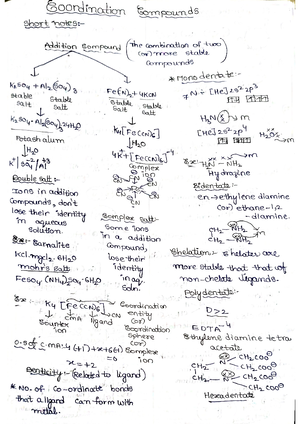 Coordination Compounds
Short notes:-
Addition Compound (The combination of two (or) more stable compounds
K₂SO₄ + Al₂(SO₄)₃
Stable Salt Stable Salt
K₂SO₄·Al₂(SO₄)₃·24H₂O
Potash alum
↓H₂O
K⁺ / SO₄⁻² / Al⁺³
Double Salt:-
Ions in addition
Compounds, don't
lose their identity
in aqueous
solution.
Ex:- Carnalite
KCl·MgCl₂·6H₂O
Mohr's Salt
FeSO₄(NH₄)₂SO₄·6H₂O
Fe(CN)₂ + 4KCN
Stable Salt Stable Salt
K₄[Fe(CN)₆]
↓H₂O
4K⁺ + [Fe(CN)₆]⁻⁴
Complex ion
Complex Salt:-
Some ions
in a addition
Compound,
lose their
identity
in aq.
Soln.
Ex:- K₄[Fe(CN)₆]
Counter ion
CMA
ligand
Coordination
entity
(or)
Coordination
Sphere
(or)
Complex
ion
x = +2
Denticity:- (Related to ligand)
* No. of co-ordinate bonds
that a ligand can form with
metal.
* Monodentate:-
₇N → [He] 2s² 2p³
[He] 2s² 2p⁴
Ex:- H₂N – NH₂ → M
Hydrazine
Bidentate:-
en → ethylene diamine
(or) ethane-1,2
-diamine.
CH₂ – NH₂
CH₂ – NH₂
M
Chelation:- Chelates are
more stable that that of
non-chelate ligands.
Polydentate:-
D>2
EDTA⁻⁴
Ethylene diamine tetra
acetate
CH₂ – N
CH₂COO⁻
CH₂COO⁻
CH₂ – N
CH₂COO⁻
CH₂COO⁻
Hexadentate